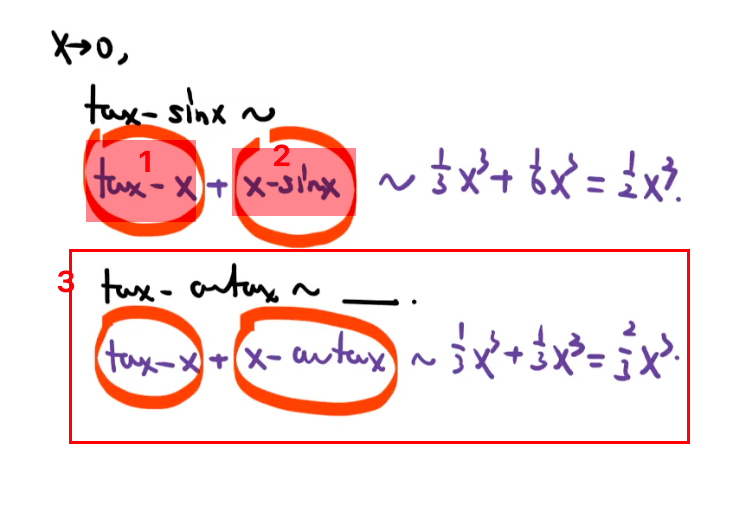 x→0,
tanx - sinx ~
1 2
tanx - x + x - sinx ~ 1/3 x³ + 1/6 x³ = 1/2 x³.
3
tanx - arctanx ~ ___.
tanx - x + x - arctanx ~ 1/3 x³ + 1/3 x³ = 2/3 x³.